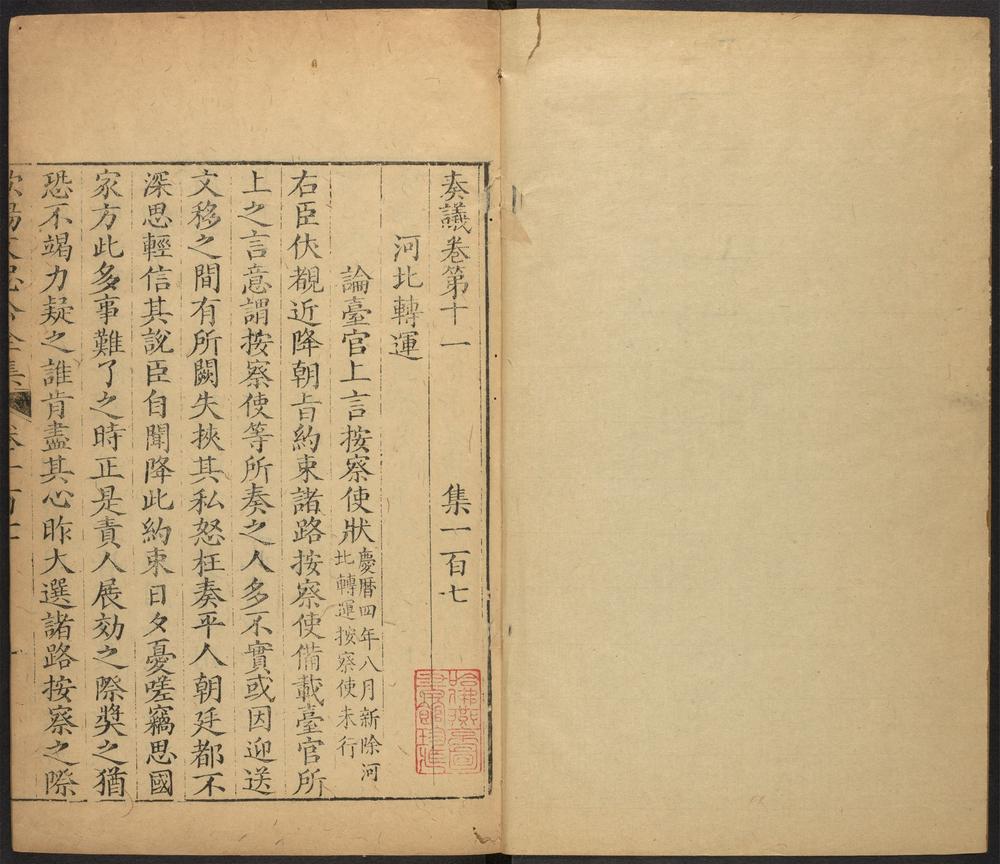 奏議卷第十一　集一百七
河北轉運
論臺官上言按察使狀慶曆四年八月新除河
北轉運按察使未行
右臣伏覩近降朝旨約束諸路按察使備載臺官所
上之言意謂按察使等所奏之人多不實或因迎送
文移之間有所闕失挾其私怒枉奏平人朝廷都不
深思輕信其說臣自聞降此約束日夕憂嗟竊思國
家方此多事難了之時正是責人展効之際奬之猶
恐不竭力疑之誰肯盡其心昨大選諸路按察之際
哈佛燕京圖
書館珍藏